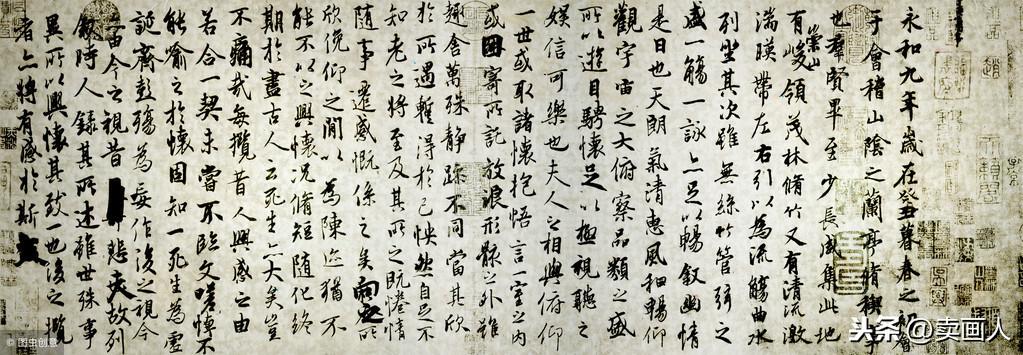 永和九年歲在癸丑暮春之初會
于會稽山陰之蘭亭脩稧事
也羣賢畢至少長咸集此地
有崇山峻領茂林脩竹又有清流激
湍暎帶左右引以為流觴曲水
列坐其次雖無絲竹管弦之
盛一觴一詠亦足以暢敘幽情
是日也天朗氣清惠風和暢仰
觀宇宙之大俯察品類之盛
所以遊目騁懷足以極視聽之
娛信可樂也夫人之相與俯仰
一世或取諸懷抱悟言一室之內
或因寄所託放浪形骸之外雖
趣舍萬殊靜躁不同當其欣
於所遇暫得於己怏然自足不
知老之將至及其所之既惓情
隨事遷感慨係之矣向之所
欣俛仰之閒以為陳迹猶不
能不以之興懷況脩短隨化終
期於盡古人云死生亦大矣豈
不痛哉每攬昔人興感之由
若合一契未嘗不臨文嗟悼不
能喻之於懷固知一死生為虛
誕齊彭殤為妄作後之視今
亦由今之視昔悲夫故列
敘時人錄其所述雖世殊事
異所以興懷其致一也後之攬
者亦將有感於斯文
©图虫创意
头条@卖画人